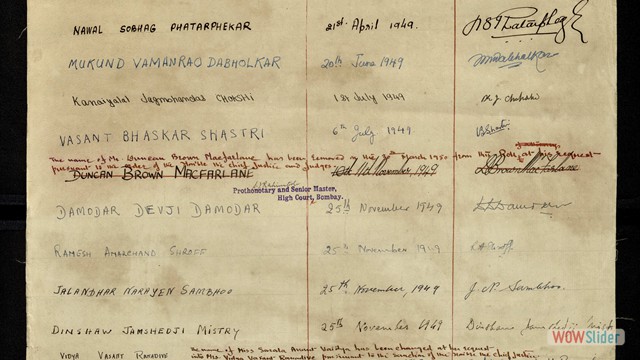 NAWAL SOBHAG PHATARPHEKAR 21st April 1949.
MUKUND VAMANRAO DABHOLKAR 20th June 1949
Kanaiyalal Jagmohandas CHOKSHI 1st July 1949
VASANT BHASKAR SHASTRI 6th July 1949
The name of Mr. Duncan Brown Macfarlane has been removed on the March 1950 from this Roll at his request
pursuant to the order of the Honble the Chief Justice and Judges.
DUNCAN BROWN MACFARLANE November 1949
Prothonotary and Senior Master,
High Court, Bombay.
DAMODAR DEVJI DAMODAR 25th November 1949
RAMESH AMARCHAND SHROFF 25th November 1949
JALANDHAR NARAYEN SAMBHOO 25th November, 1949
DINSHAW JAMSHEDJI MISTRY 25th November 1949
the name of Miss Sarala Anant Vaidya has been changed at her request
VIDYA VASANT RANADIVE into Mrs. Vidya Vasant Ranadive pursuant to the sanction of the Honble the Chief Justice
WOWSlider